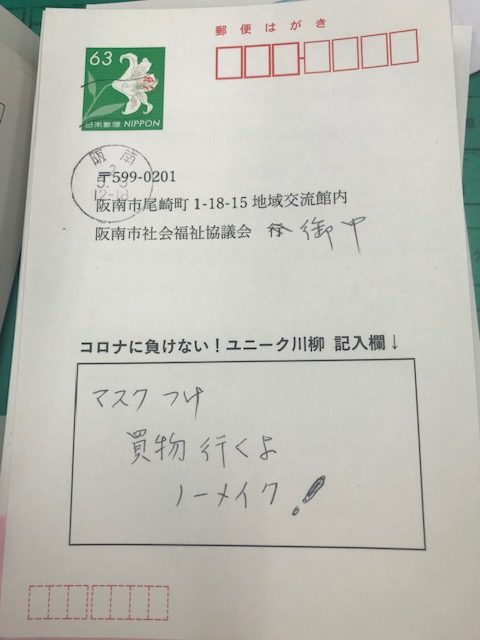 郵便はがき
63
日本郵便 NIPPON
阪南
12-18
〒599-0201
阪南市尾崎町 1-18-15 地域交流館内
阪南市社会福祉協議会 御中
コロナに負けない！ユニーク川柳 記入欄↓
マスク つけ
買物 行くよ
ノーメイク！